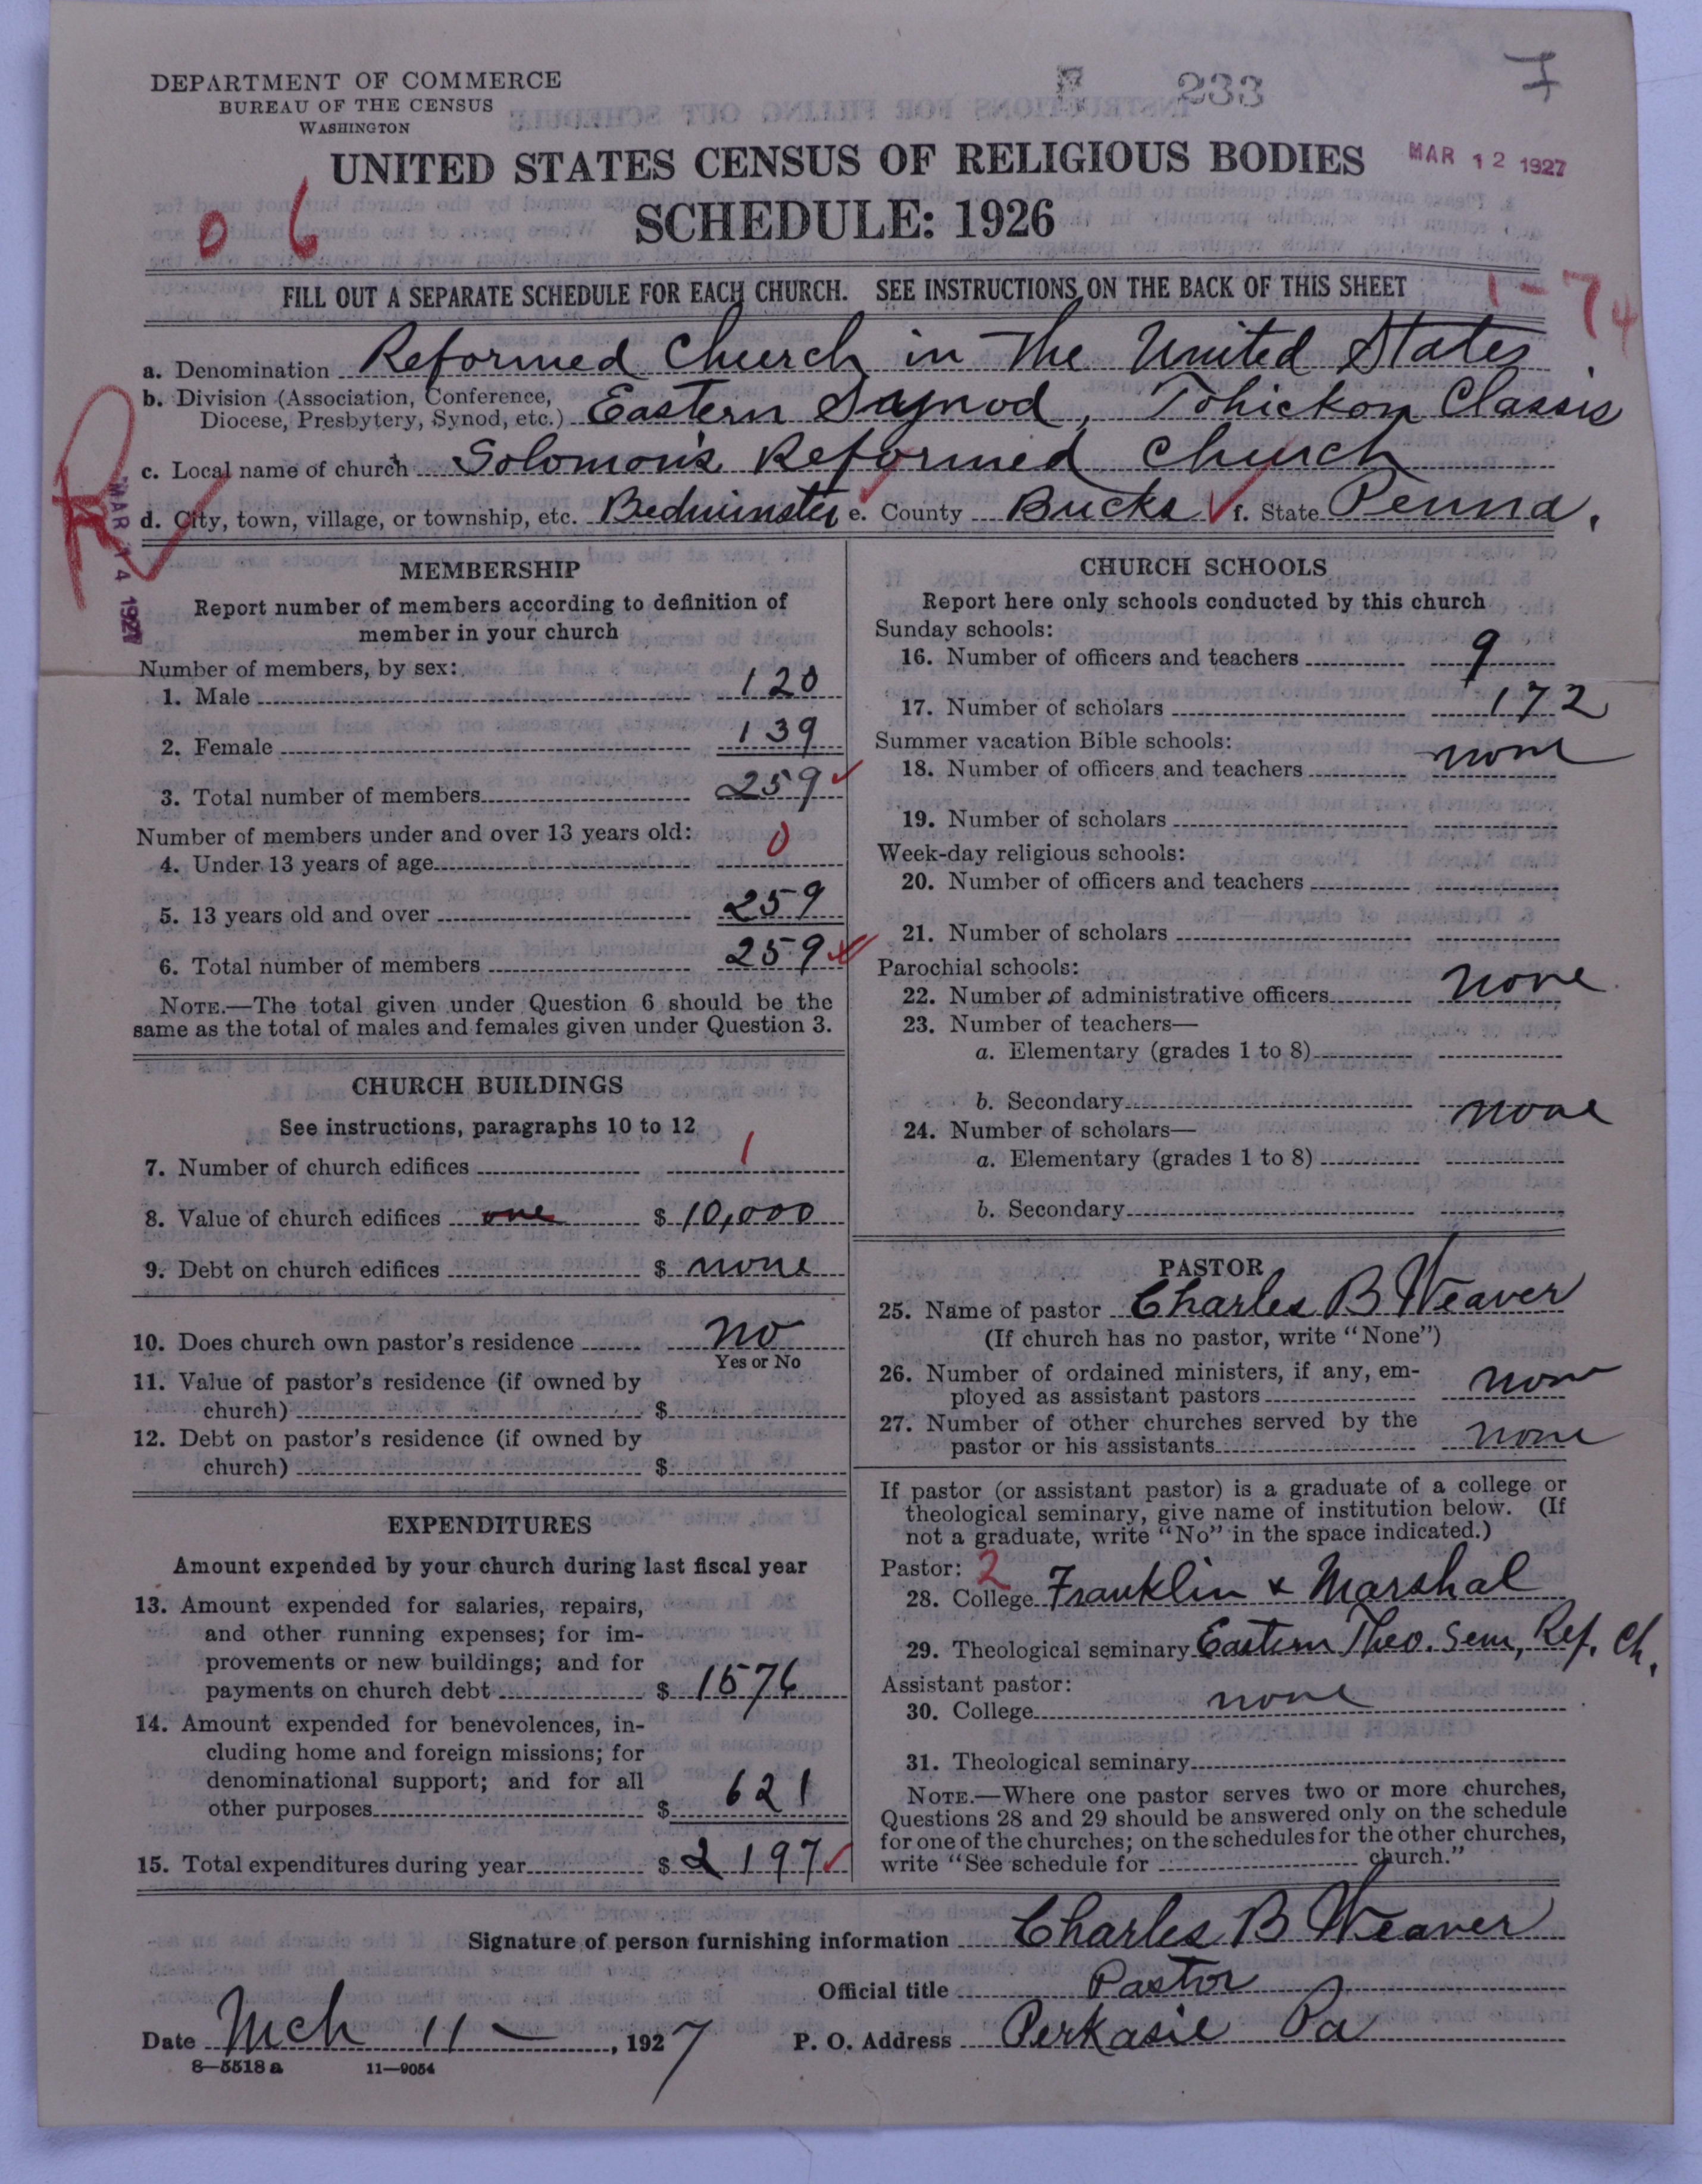 DEPARTMENT OF COMMERCE
BUREAU OF THE CENSUS
WASHINGTON
233
7
UNITED STATES CENSUS OF RELIGIOUS BODIES
MAR 12 1927
SCHEDULE: 1926
0 6
FILL OUT A SEPARATE SCHEDULE FOR EACH CHURCH. SEE INSTRUCTIONS ON THE BACK OF THIS SHEET
1-74
a. Denomination Reformed Church in The United States.
b. Division (Association, Conference,
Diocese, Presbytery, Synod, etc.) Eastern Synod, Tohickon Classis
c. Local name of church Solomon's Reformed Church
d. City, town, village, or township, etc. Bedminster e. County Bucks f. State Penna.
R
MAR 14 1927
MEMBERSHIP
Report number of members according to definition of
member in your church
Number of members, by sex:
1. Male 120
2. Female 139
3. Total number of members 259
Number of members under and over 13 years old:
4. Under 13 years of age 0
5. 13 years old and over 259
6. Total number of members 259
NOTE.—The total given under Question 6 should be the
same as the total of males and females given under Question 3.
CHURCH BUILDINGS
See instructions, paragraphs 10 to 12
7. Number of church edifices 1
8. Value of church edifices one $ 10,000
9. Debt on church edifices $ none
10. Does church own pastor's residence no
Yes or No
11. Value of pastor's residence (if owned by
church) $
12. Debt on pastor's residence (if owned by
church) $
EXPENDITURES
Amount expended by your church during last fiscal year
13. Amount expended for salaries, repairs,
and other running expenses; for im-
provements or new buildings; and for
payments on church debt $ 1576
14. Amount expended for benevolences, in-
cluding home and foreign missions; for
denominational support; and for all
other purposes $ 621
15. Total expenditures during year $ 2197
CHURCH SCHOOLS
Report here only schools conducted by this church
Sunday schools:
16. Number of officers and teachers 9
17. Number of scholars 172
Summer vacation Bible schools:
18. Number of officers and teachers none
19. Number of scholars
Week-day religious schools:
20. Number of officers and teachers
21. Number of scholars
Parochial schools:
22. Number of administrative officers none
23. Number of teachers—
a. Elementary (grades 1 to 8)
b. Secondary none
24. Number of scholars—
a. Elementary (grades 1 to 8)
b. Secondary
PASTOR
25. Name of pastor Charles B Weaver
(If church has no pastor, write "None")
26. Number of ordained ministers, if any, em-
ployed as assistant pastors none
27. Number of other churches served by the
pastor or his assistants none
If pastor (or assistant pastor) is a graduate of a college or
theological seminary, give name of institution below. (If
not a graduate, write "No" in the space indicated.)
Pastor: 2
28. College Franklin & Marshal
29. Theological seminary Eastern Theo. Sem, Ref. Ch.
Assistant pastor:
30. College none
31. Theological seminary
NOTE.—Where one pastor serves two or more churches,
Questions 28 and 29 should be answered only on the schedule
for one of the churches; on the schedules for the other churches,
write "See schedule for church."
Signature of person furnishing information Charles B Weaver
Official title Pastor
Date Mch 11 — , 1927 P. O. Address Perkasie Pa
8—5518 a 11—9054